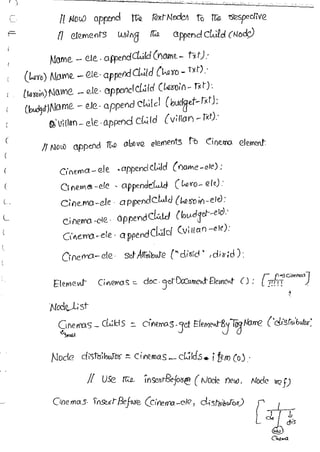 // Now append the Text Nodes to the respective
// elements using the append Child (Node)
Name - ele. append Child (name - txt);
(hero) Name - ele. append Child (hero - txt);
(heroin) Name - ele. append Child (heroin - txt);
(budget) Name - ele. append Child (budget - txt);
Villan - ele. append Child (villan - txt);
// Now append the above elements to Cinema element
Cinema-ele . append Child (name-ele);
Cinema-ele . append Child (hero-ele);
Cinema-ele . append Child (heroin-ele);
Cinema-ele . append Child (budget-ele);
Cinema-ele . append Child (villan-ele);
Cinema-ele . set Attribute ("distid", distid);
Element Cinemas = doc. get Document Element ();
Node List
Cinemas - childs = cinemas. get Element By Tag Name ("distributor
Node distributor = Cinemas - childs. item (0);
// Use the insert Before (Node new, Node ref)
Cinemas. insert Before (Cinema-ele, distributor)
dis
Cinema